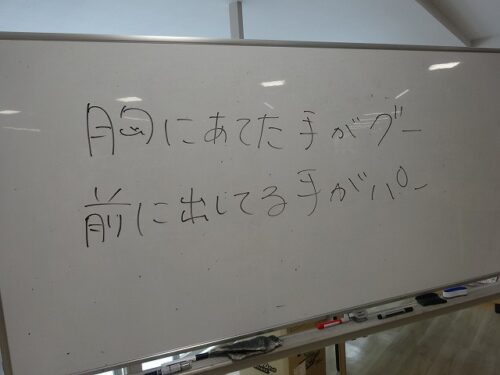 胸にあてた手がグー
前に出してる手がパー